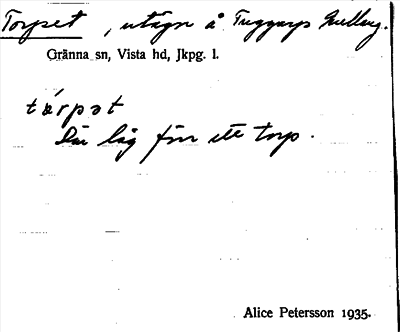 Torpet, utägn å Tuggarps Mellang.
Gränna sn, Vista hd, Jkpg. l.
tårpət
Där låg förr ett torp.
Alice Petersson 1935.